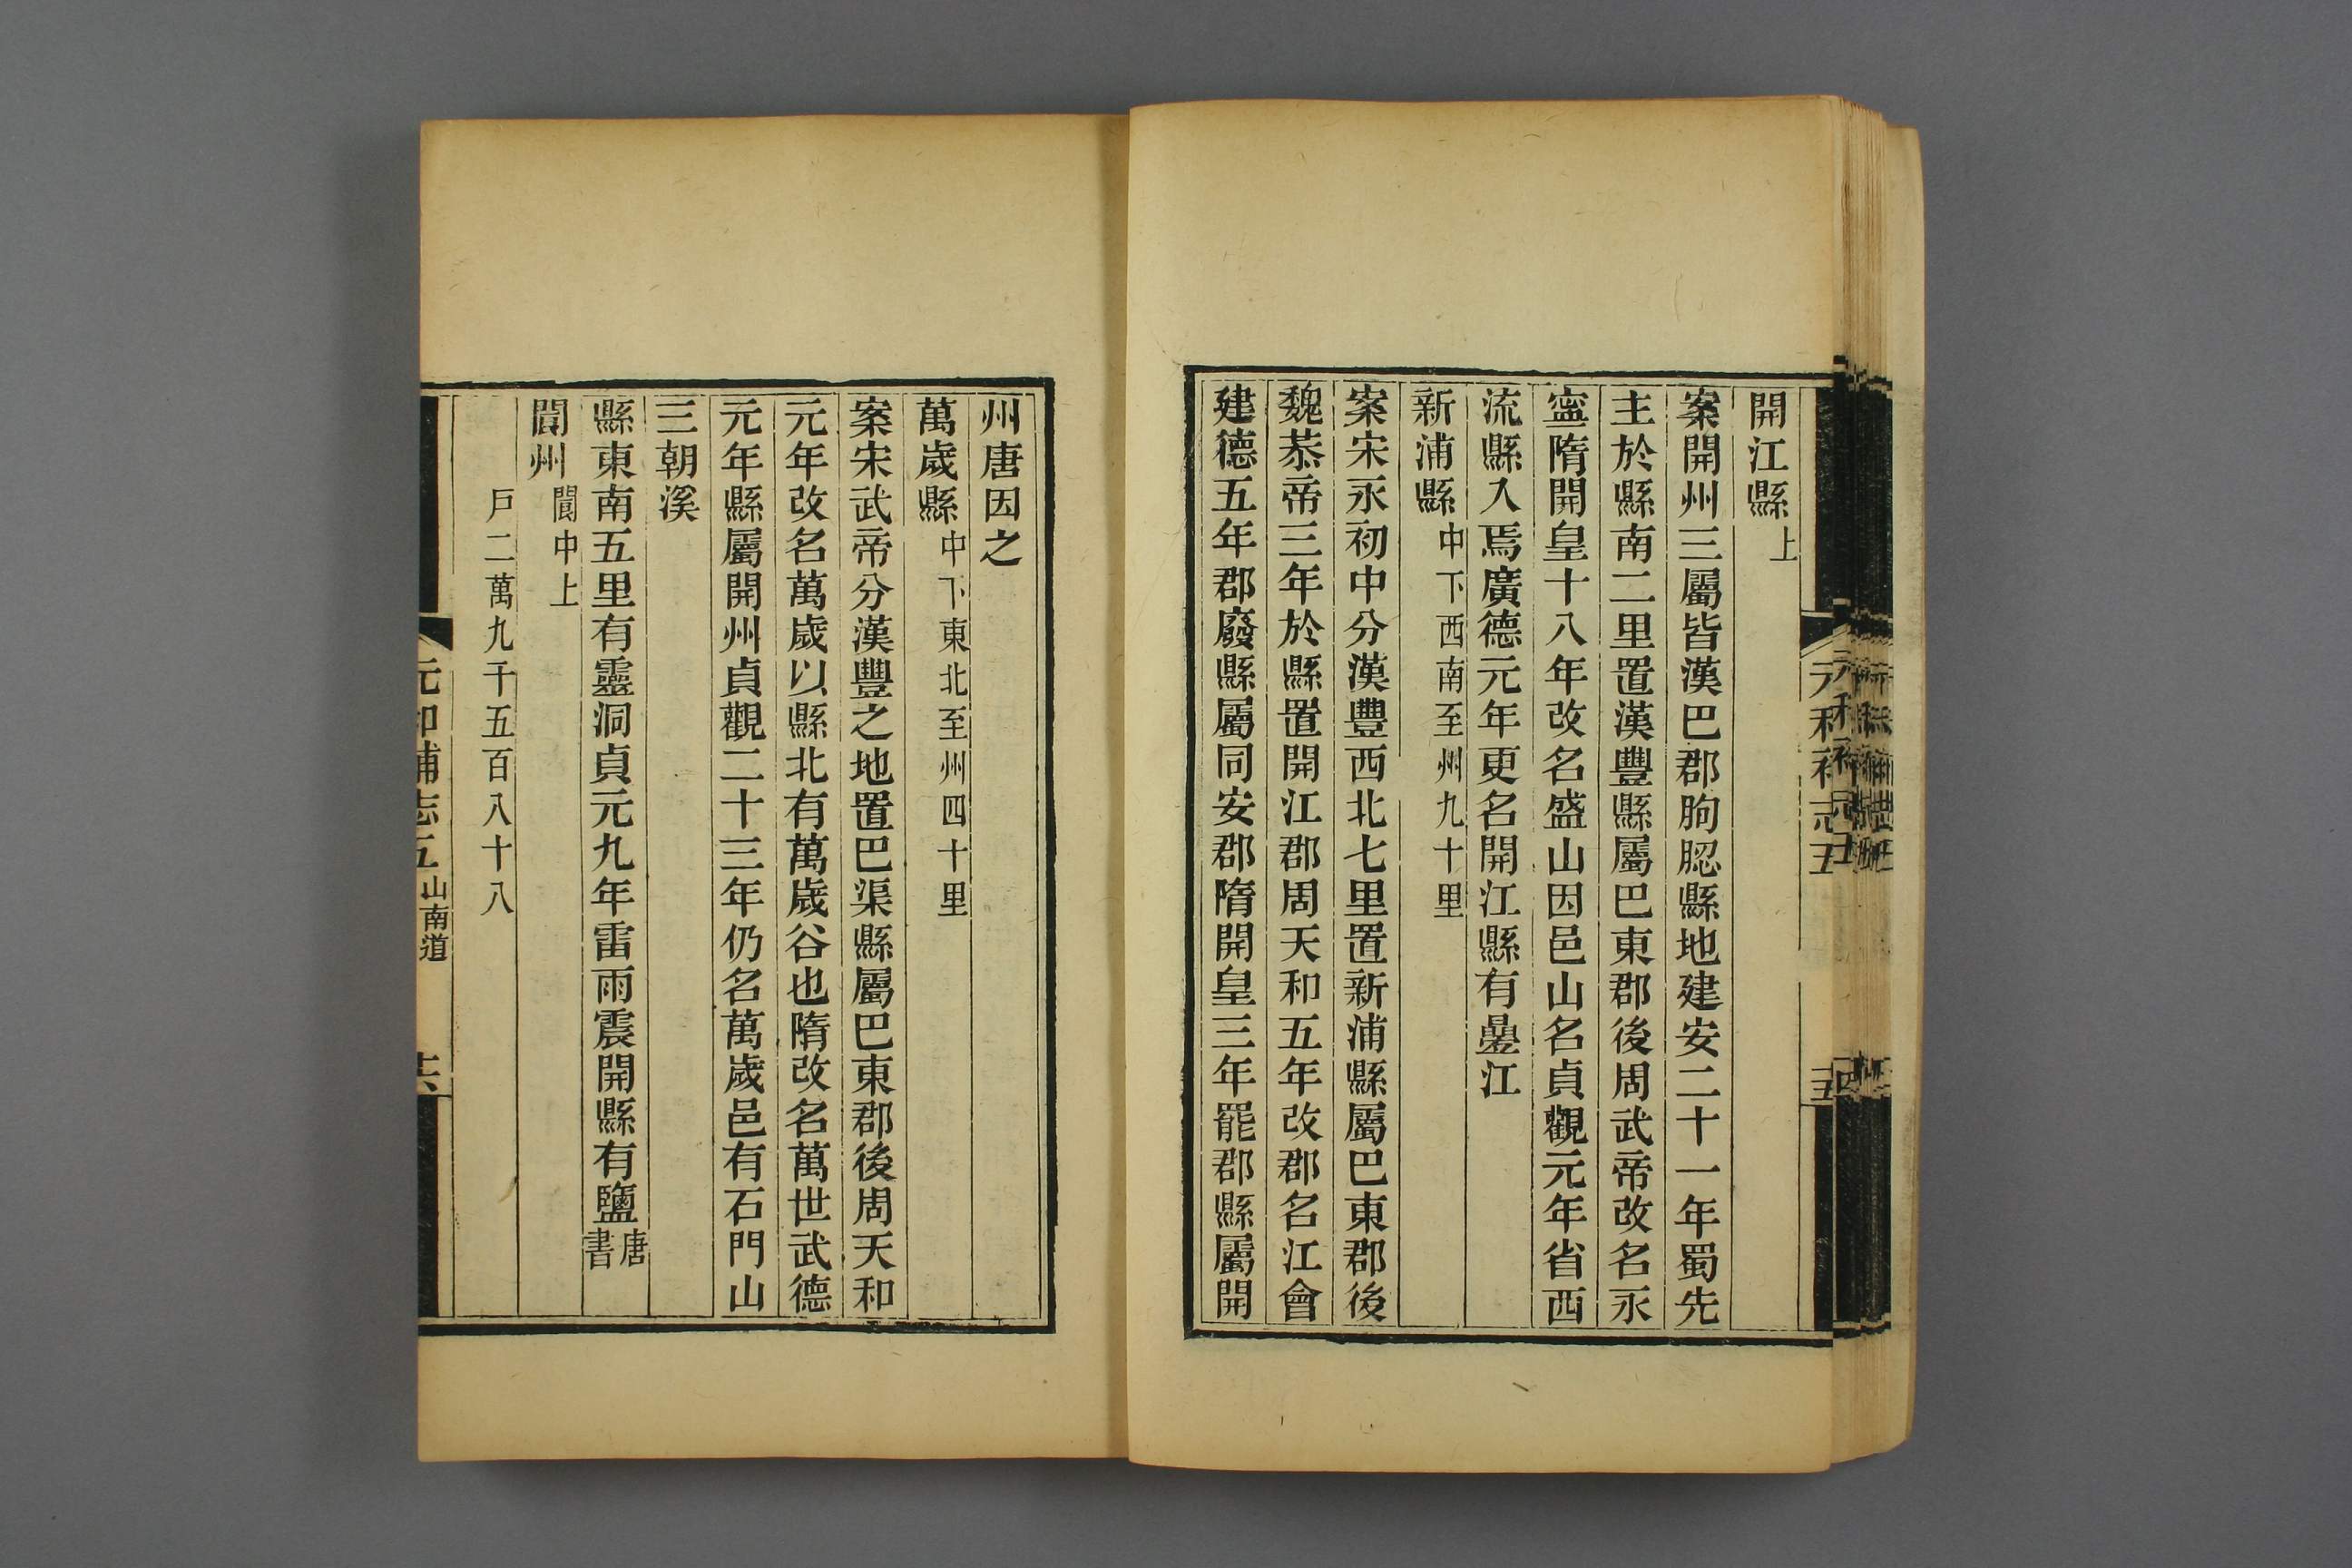 開江縣上
案開州三屬皆漢巴郡朐䏰縣地建安二十一年蜀先
主於縣南二里置漢豐縣屬巴東郡後周武帝改名永
寧隋開皇十八年改名盛山因邑山名貞觀元年省西
流縣入焉廣德元年更名開江縣有疊江
新浦縣中下西南至州九十里
案宋永初中分漢豐西北七里置新浦縣屬巴東郡後
魏恭帝三年於縣置開江郡周天和五年改郡名江會
建德五年郡廢縣屬同安郡隋開皇三年罷郡縣屬開
州唐因之
萬歲縣中下東北至州四十里
案宋武帝分漢豐之地置巴渠縣屬巴東郡後周天和
元年改名萬歲以縣北有萬歲谷也隋改名萬世武德
元年縣屬開州貞觀二十三年仍名萬歲邑有石門山
三朝溪
縣東南五里有靈洞貞元九年雷雨震開縣有鹽唐書
閬州閬中上
戶二萬九千五百八十八
元和補志五山南道